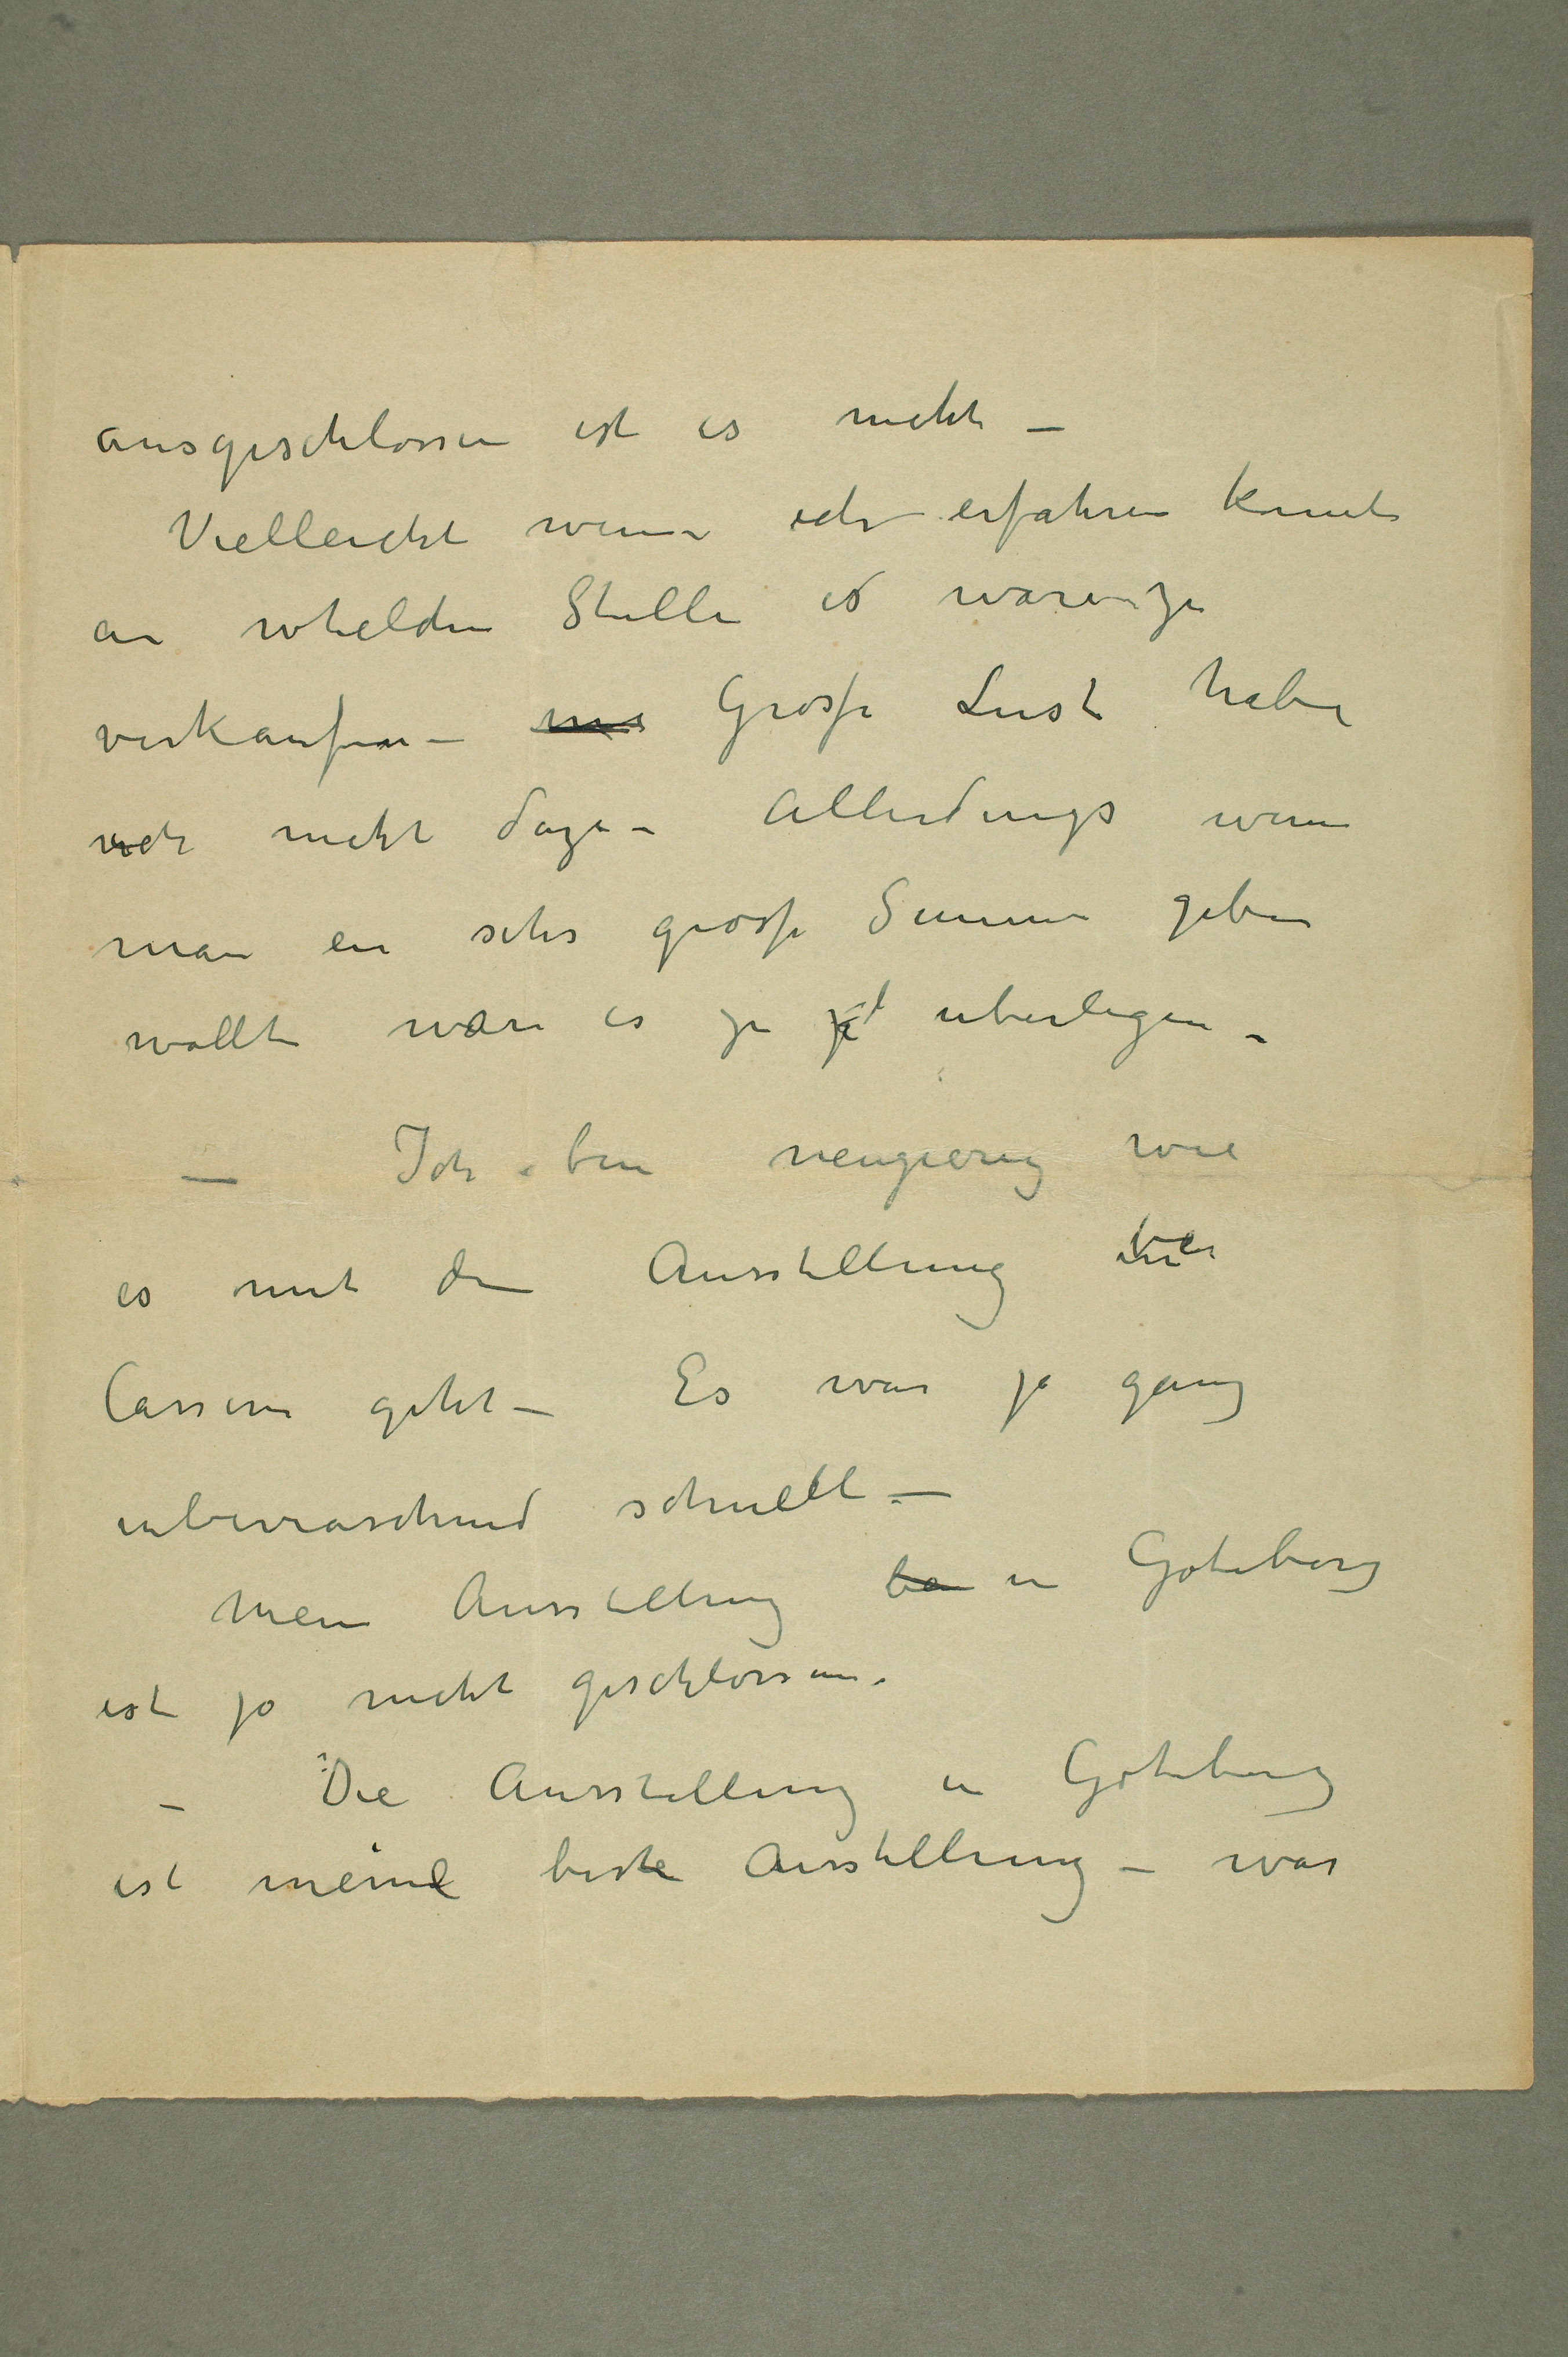 ausgeschlossen ist es nicht –
Vielleicht wenn ich erfahren konnte
an whelchen Stelle es waren zu
verkaufen – Grosse Lust habe
ich nicht dazu – Allerdings wenn
man ein sehr grosse Summe geben
wollte wäre es zu uberlegen –
– Ich bin neugierig wie
es mit den Ausstellung bei
Cassirer geht – Es war ja ganz
uberraschend schnell –
Mein Ausstellung in Goteborg
ist ja nicht geschlossen.
– Die Ausstellung in Göteborg
ist meine beste Ausstellung – was